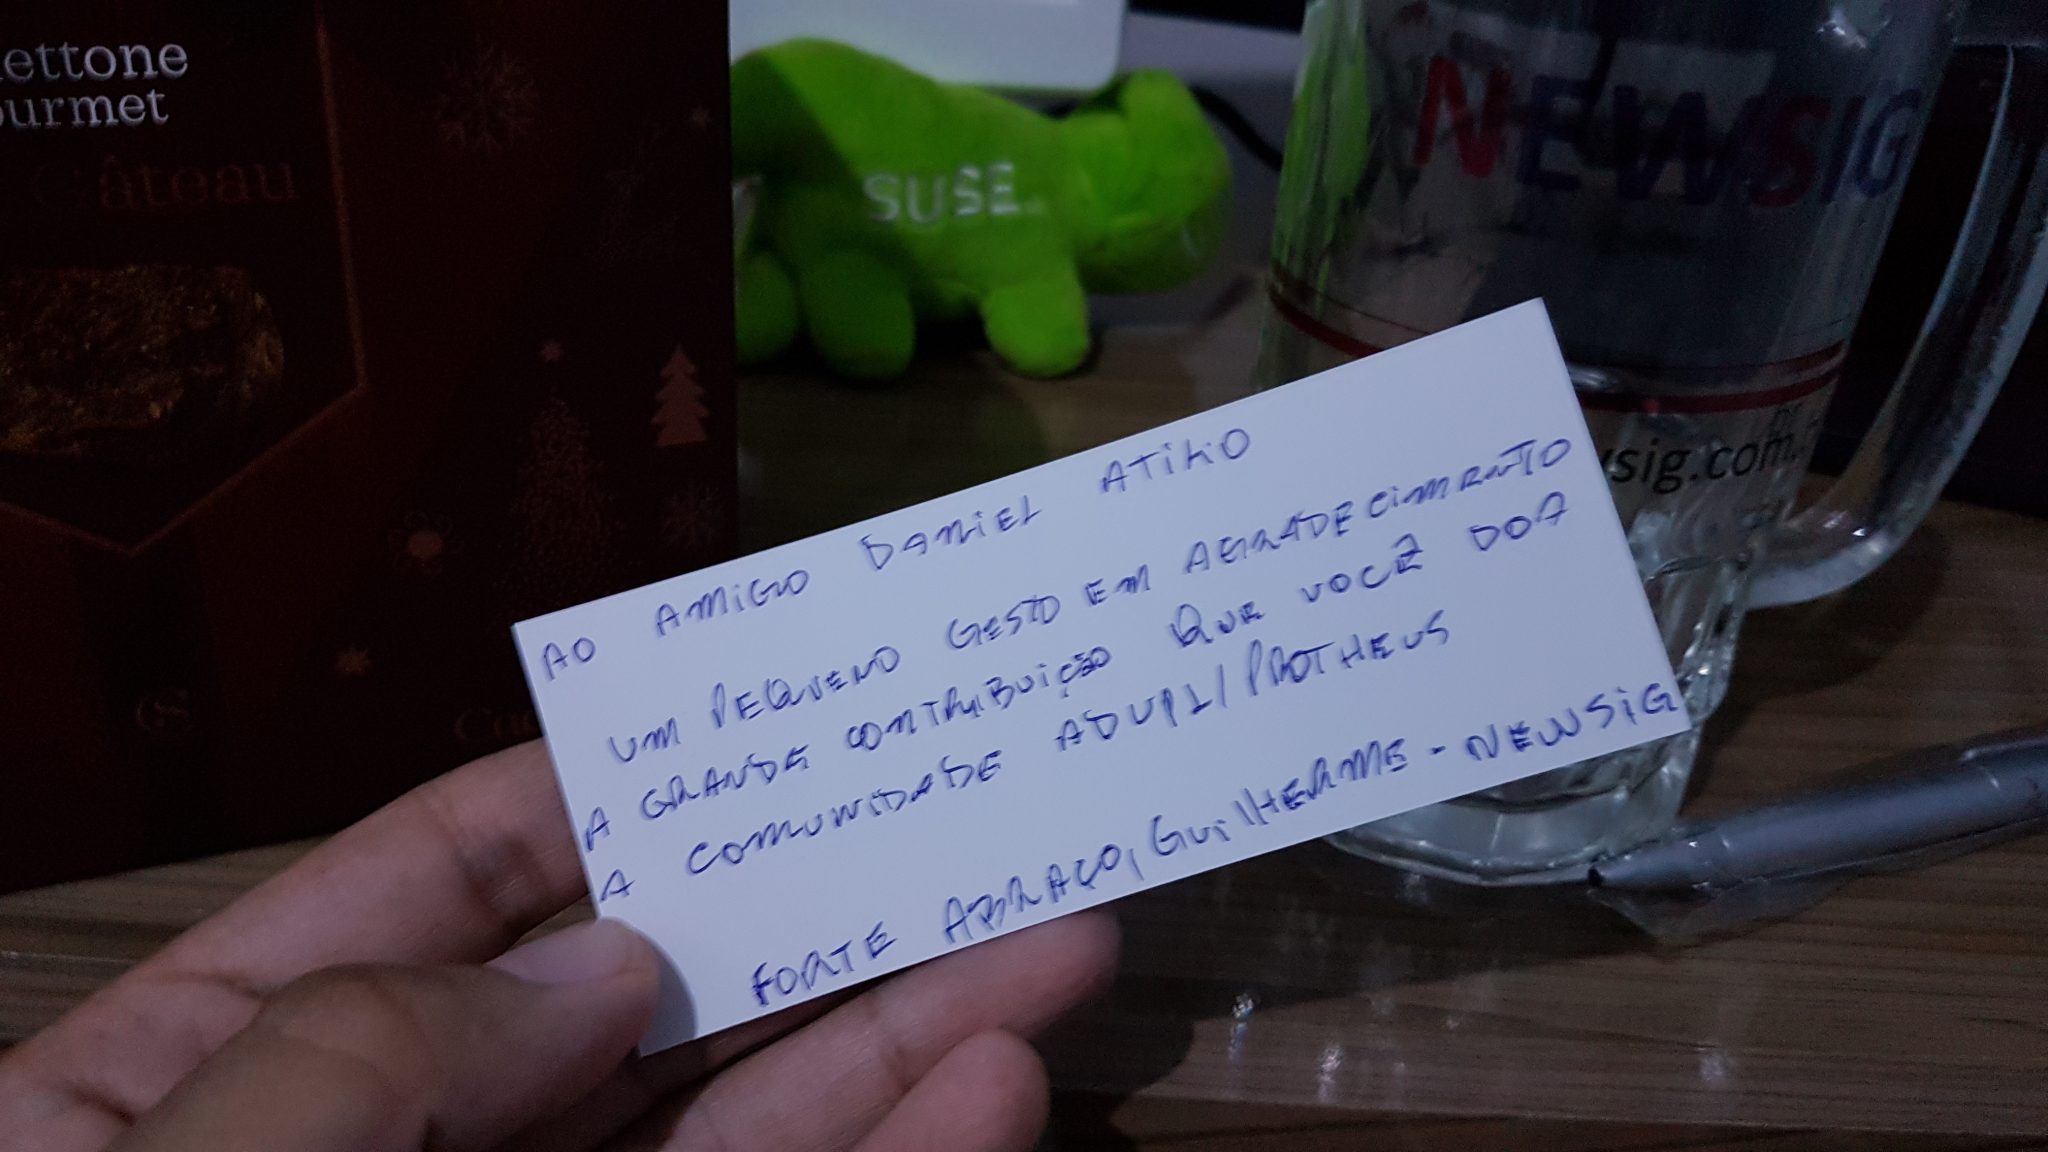 ettone
ourmet
Gâteau
SUSE
NEWSIG
wsig.com.
AO AMIGO DANIEL ATILIO
UM PEQUENO GESTO EM AGRADECIMENTO
A GRANDE CONTRIBUIÇÃO QUE VOCÊ DOA
A COMUNIDADE ADVPL/PROTHEUS
FORTE ABRAÇO, GUILHERME - NEWSIG